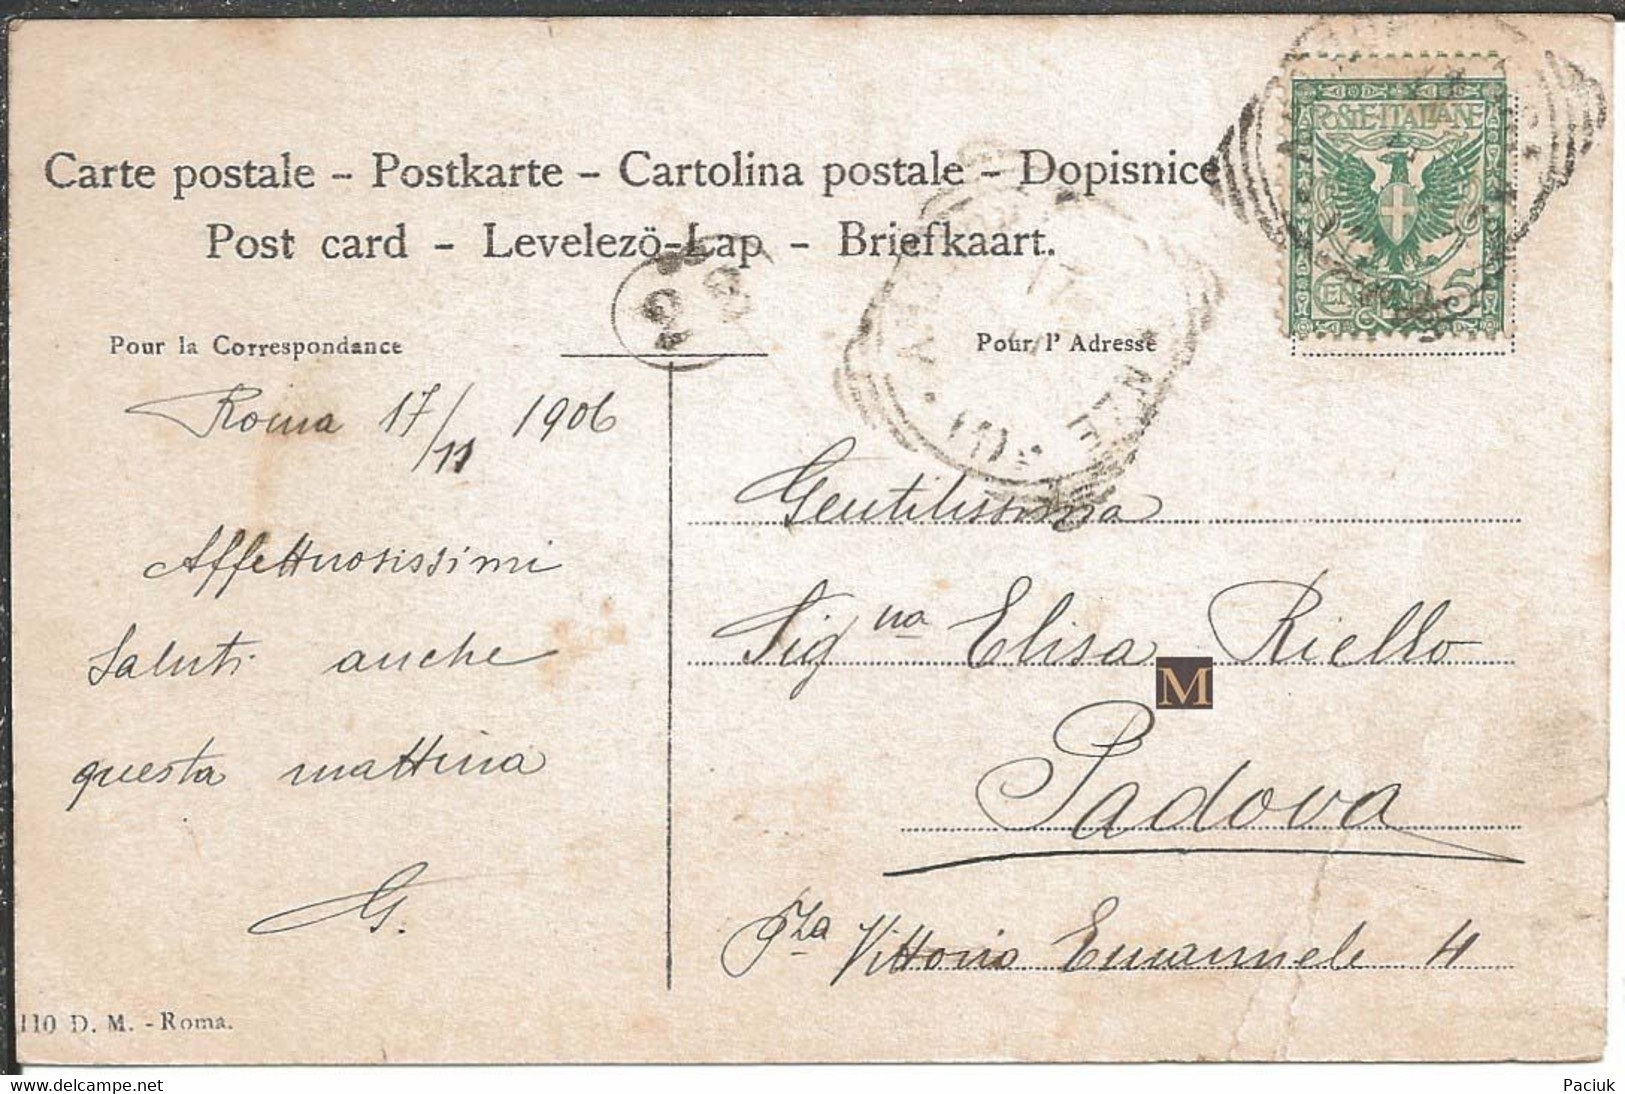 Carte postale – Postkarte – Cartolina postale – Dopisnice
Post card – Levelezö-Lap – Briefkaart.
Pour la Correspondance
Pour l' Adresse
POSTE·ITALIANE
5
Roma 17/11 1906
Affettuosissimi
saluti anche
questa mattina
G.
Gentilissima
Signa Elisa Riello
Padova
Pza Vittorio Emanuele 4
M
110 D. M. - Roma.
delcampe.net
Paciuk